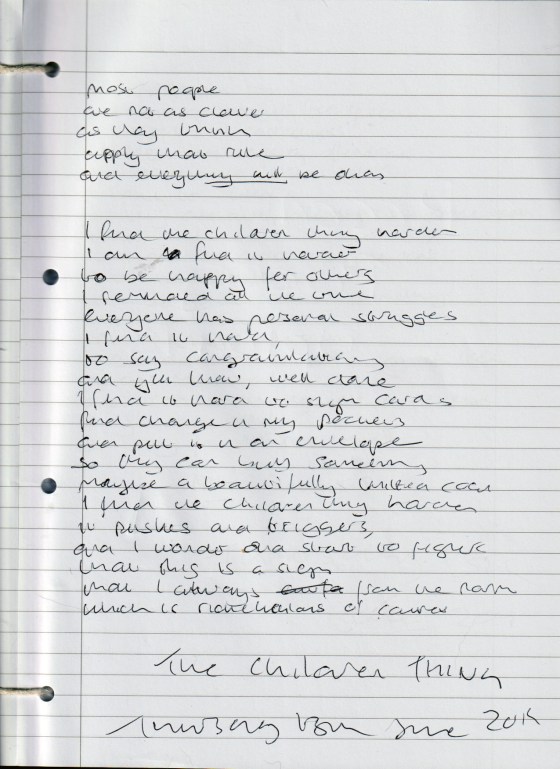 most people
are not as clever
as they think
apply that rule
and everything will be okay
I find the children thing harder
I am find it harder
to be happy for others
I reminded all the time
everyone has personal struggles
I find it hard,
to say congratulations
and you know, well done
I find it hard to sign cards
find change in my pockets
and put it in an envelope
so they can buy something
maybe a beautifully knitted coat
I find the children thing harder
it pushes and triggers,
and I wonder and start to figure
that this is a sign
that I always from the norm
which is ridiculous of course
The children THING
June 2015